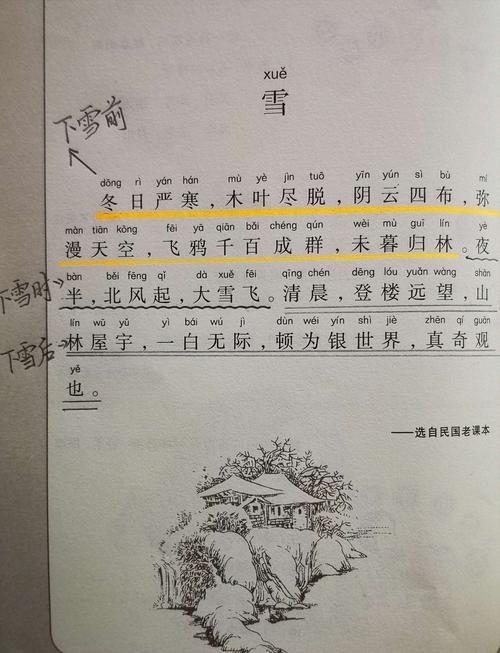 xuě
雪
下雪前
dōng rì yán hán mù yè jìn tuō yīn yún sì bù mí
冬日严寒,木叶尽脱,阴云四布,弥
màn tiān kōng fēi yā qiān bǎi chéng qún wèi mù guī lín yè
漫天空,飞鸦千百成群,未暮归林。夜
下雪时
bàn běi fēng qǐ dà xuě fēi qīng chén dēng lóu yuǎn wàng shān
半,北风起,大雪飞。清晨,登楼远望,山
下雪后
lín wū yǔ yì bái wú jì dùn wéi yín shì jiè zhēn qí guān
林屋宇,一白无际,顿为银世界,真奇观
yě
也。
——选自民国老课本